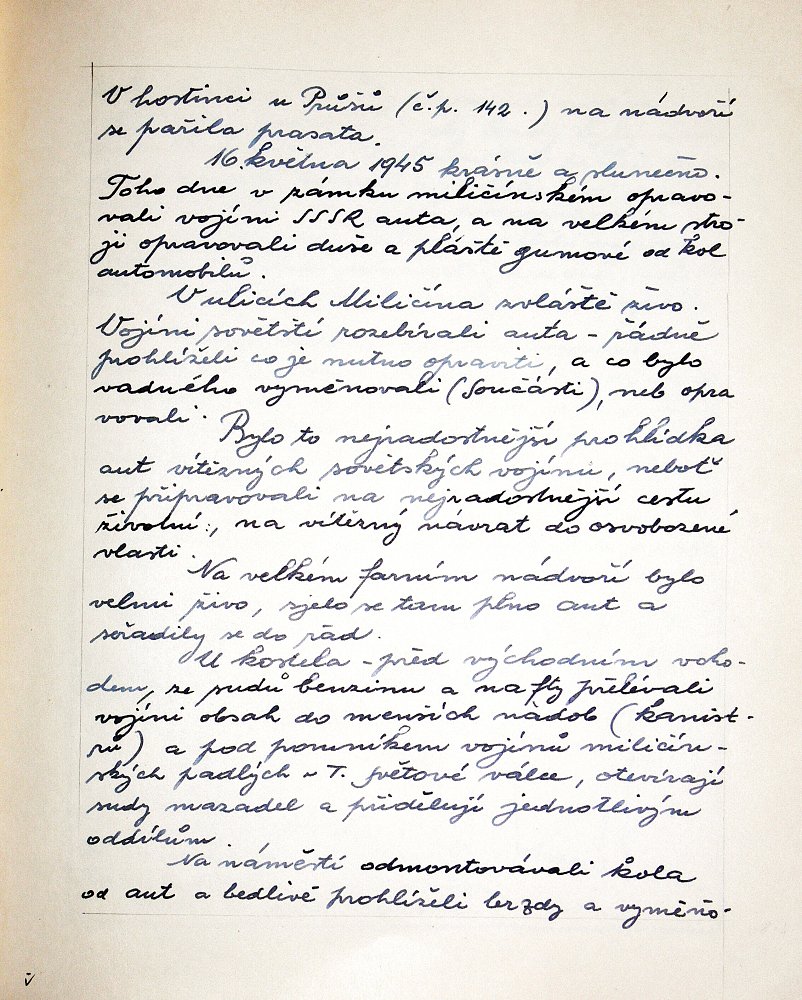 V hostinci u Průšů (č.p. 142.) na nádvoří
se pařila prasata.
16. května 1945 krásně a slunečno.
Toho dne v zámku miličínském opravo-
vali vojíni SSSR auta, a na velkém stro-
ji opravovali duše a pláště gumové od kol
automobilů.
V ulicích Miličína zvláště živo.
Vojíni sovětští rozebírali auta - řádně
prohlíželi co je nutno opraviti, a co bylo
vadného vyměňovali (součásti), neb opra
vovali.
Bylo to nejradostnější prohlídka
aut vítězných sovětských vojínů, neboť
se připravovali na nejradostnější cestu
životní:, na vítězný návrat do osvobozené
vlasti.
Na velkém farním nádvoří bylo
velmi živo, sjelo se tam plno aut a
seřadily se do řad.
U kostela - před východním vcho-
dem, ze sudů benzinu a nafty přelévali
vojíni obsah do menších nádob (kanist-
rů) a pod pomníkem vojínů miličín-
ských padlých v I. světové válce, otevírají
sudy mazadel a přidělují jednotlivým
oddílům.
Na náměstí odmontovávali kola
od aut a bedlivě prohlíželi brzdy a vyměňo-
v